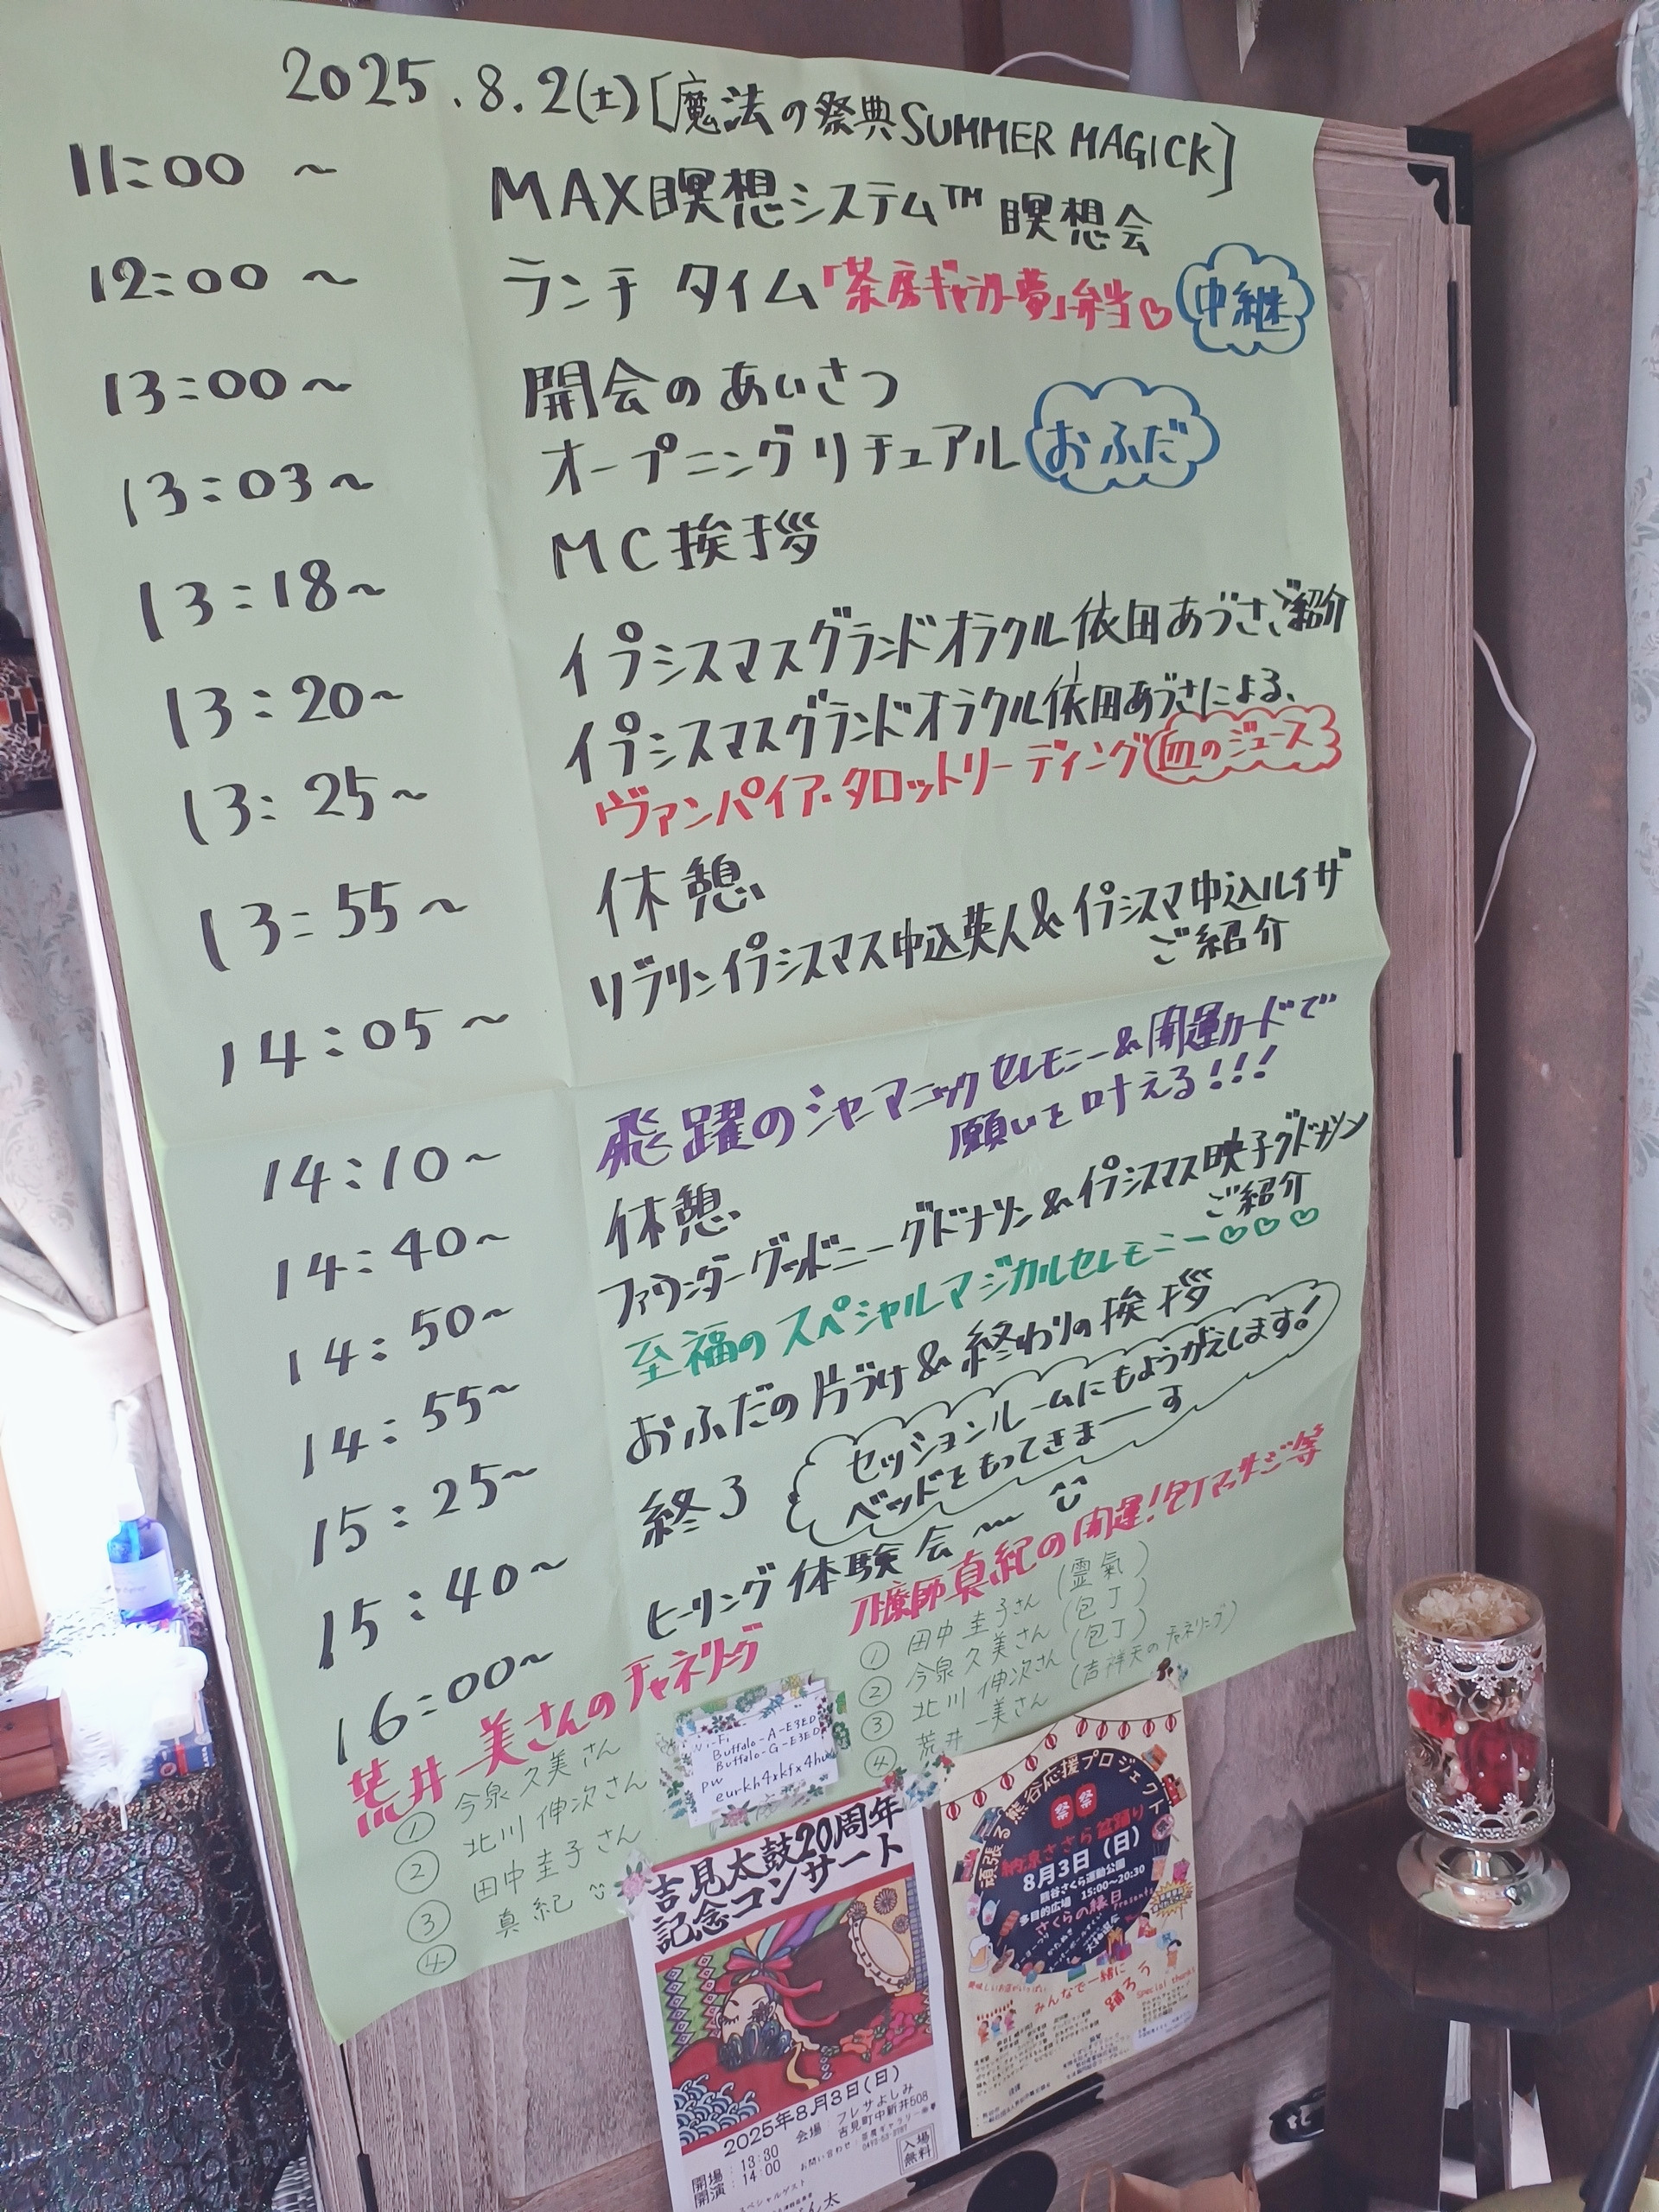 2025.8.2(土)[魔法の祭典SUMMER MAGICK]
11:00 ～ MAX瞑想システム™ 瞑想会
12:00 ～ ランチ タイム「茶房ギャラリー夢」弁当♡ 中継
13:00～ 開会のあいさつ
13:03～ オープニングリチュアル おふだ
13:18～ MC挨拶
13:20～ イプシシマスグランドオラクル依田あづさご紹介
13:25～ イプシシマスグランドオラクル依田あづさによる、
ヴァンパイア・タロットリーディング 血のジュース
13:55～ 休憩
14:05～ リブリンイプシシマス申込英人&イプシシマ申込ルイザ
ご紹介
14:10～ 飛躍のシャーマニックセレモニー&開運カードで
願いを叶える!!!
14:40～ 休憩
14:50～ ファウンダーグッドニーグドナソン&イプシシマス映子グドナソン
ご紹介
14:55～ 至福のスペシャルマジカルセレモニー♡♡♡
15:25～ おふだの片づけ&終わりの挨拶
15:40～ 終了
セッションルームにもようがえします!
ベッドをもってきまーーす
16:00～ ヒーリング体験会〜
荒井一美さんのチャネリング
① 今泉久美さん
② 北川伸次さん
③ 田中圭子さん
④ 真紀
刀療師真紀の開運!包丁マッサージ等
① 田中圭子さん(霊氣)
② 今泉久美さん(包丁)
③ 北川伸次さん(包丁)
④ 荒井一美さん(吉祥天のチャネリング)
Wi-Fi
Buffalo-A-E3ED
Buffalo-G-E3ED
PW
吉見太鼓20周年
記念コンサート
2025年8月3日(日)
会場:フレサよしみ
吉見町中新井508
開場:13:30
開演:14:00
入場
無料
頑張る熊谷応援プロジェクト
祭 祭
納涼ささら盆踊り
8月3日(日)
熊谷さくら運動公園
多目的広場 15:00～20:30
さくらの縁日
みんなで一緒に
踊ろう
Special thanks